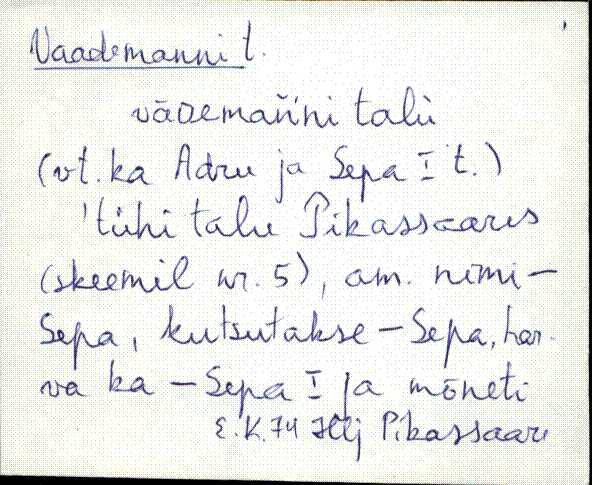 Vaademanni t.
vāᴅemańńi talù
(vt. ka Adru ja Sepa I t.)
'tühi talu Pikassaares
(skeemil nr. 5), am. nimi–
Sepa, kutsutakse – Sepa, har-
va ka – Sepa I ja mõneti
E.K. 74 Hlj Pikassaare